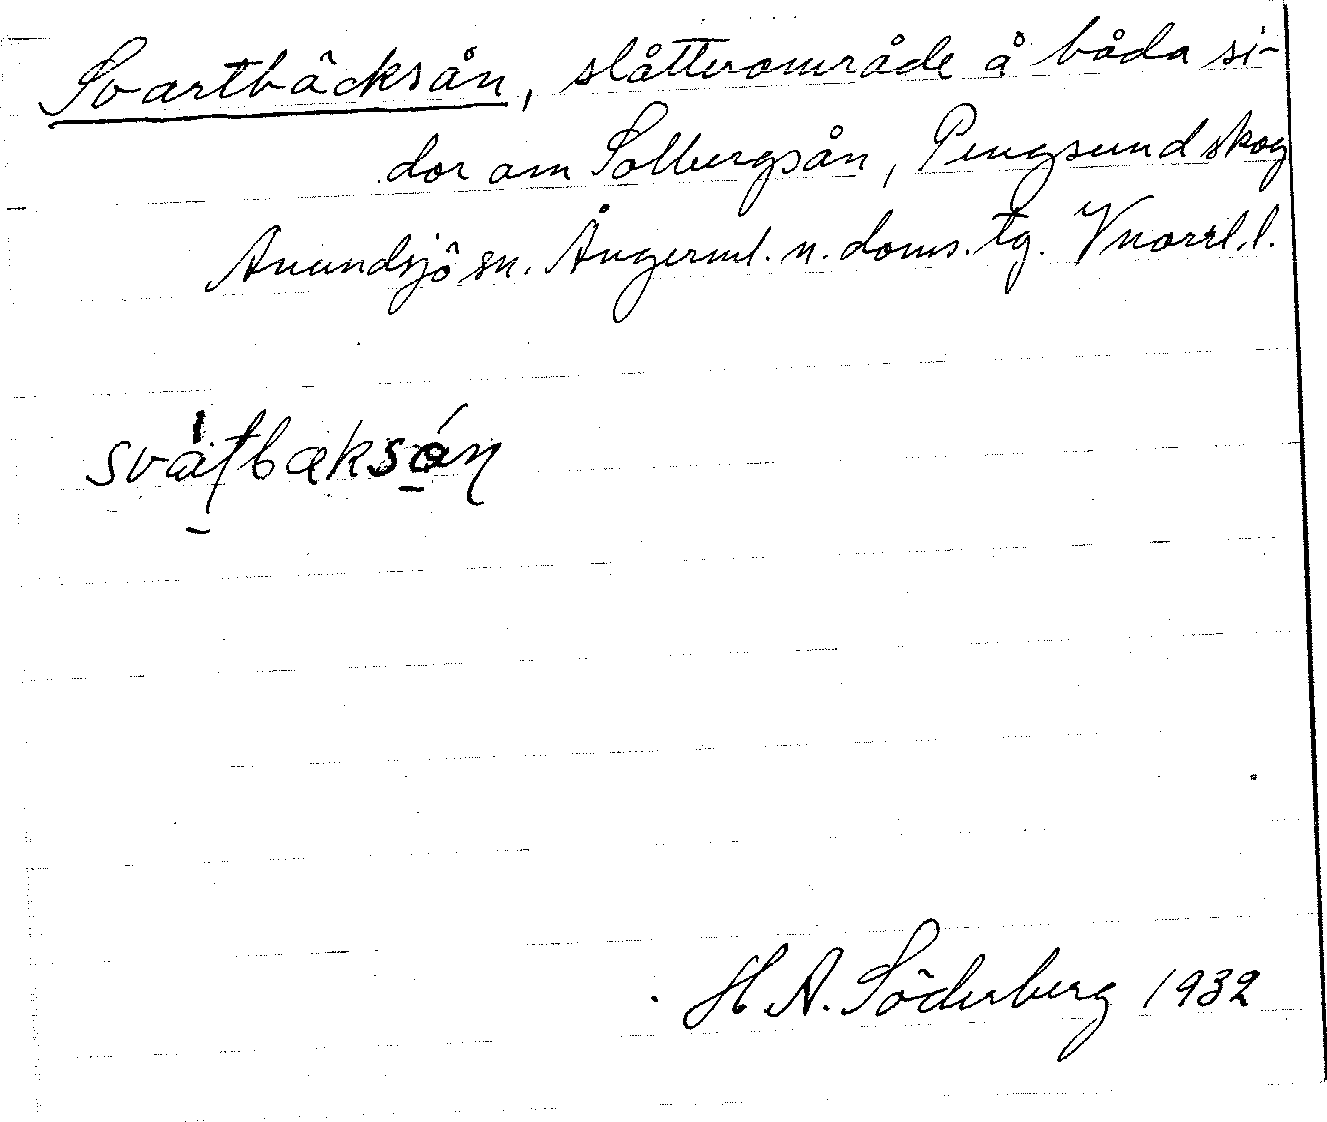 Svartbäcksån, slåtterområde å båda si-
dor om Solbergsån, Pengsund skog
Anundsjö sn. Ångerml. n. doms. tg. Vnorrl. l.
svatbæksån
H. A. Söderberg 1932